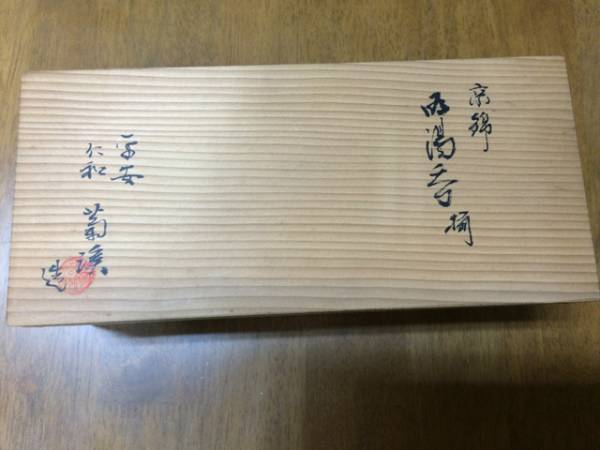 京錦
湯呑 揃
平安
仁和 菊渓
造